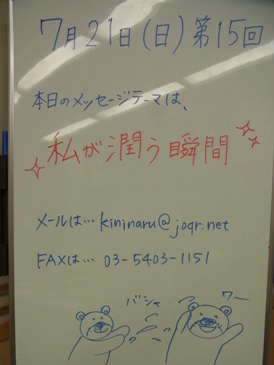 7月21日(日)第15回
本日のメッセージテーマは、
私が潤う瞬間
メールは…kininaru@joqr.net
FAXは…03-5403-1151
バシャ
ワー